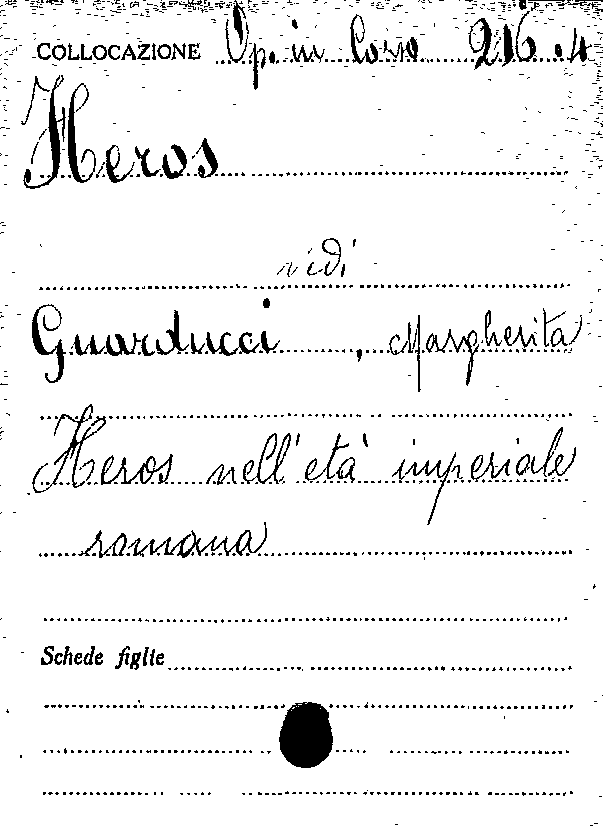 COLLOCAZIONE Op. in Corso 216.4
Heros
vidi
Guarducci, Margherita
Heros nell'età imperiale
romana
Schede figlie